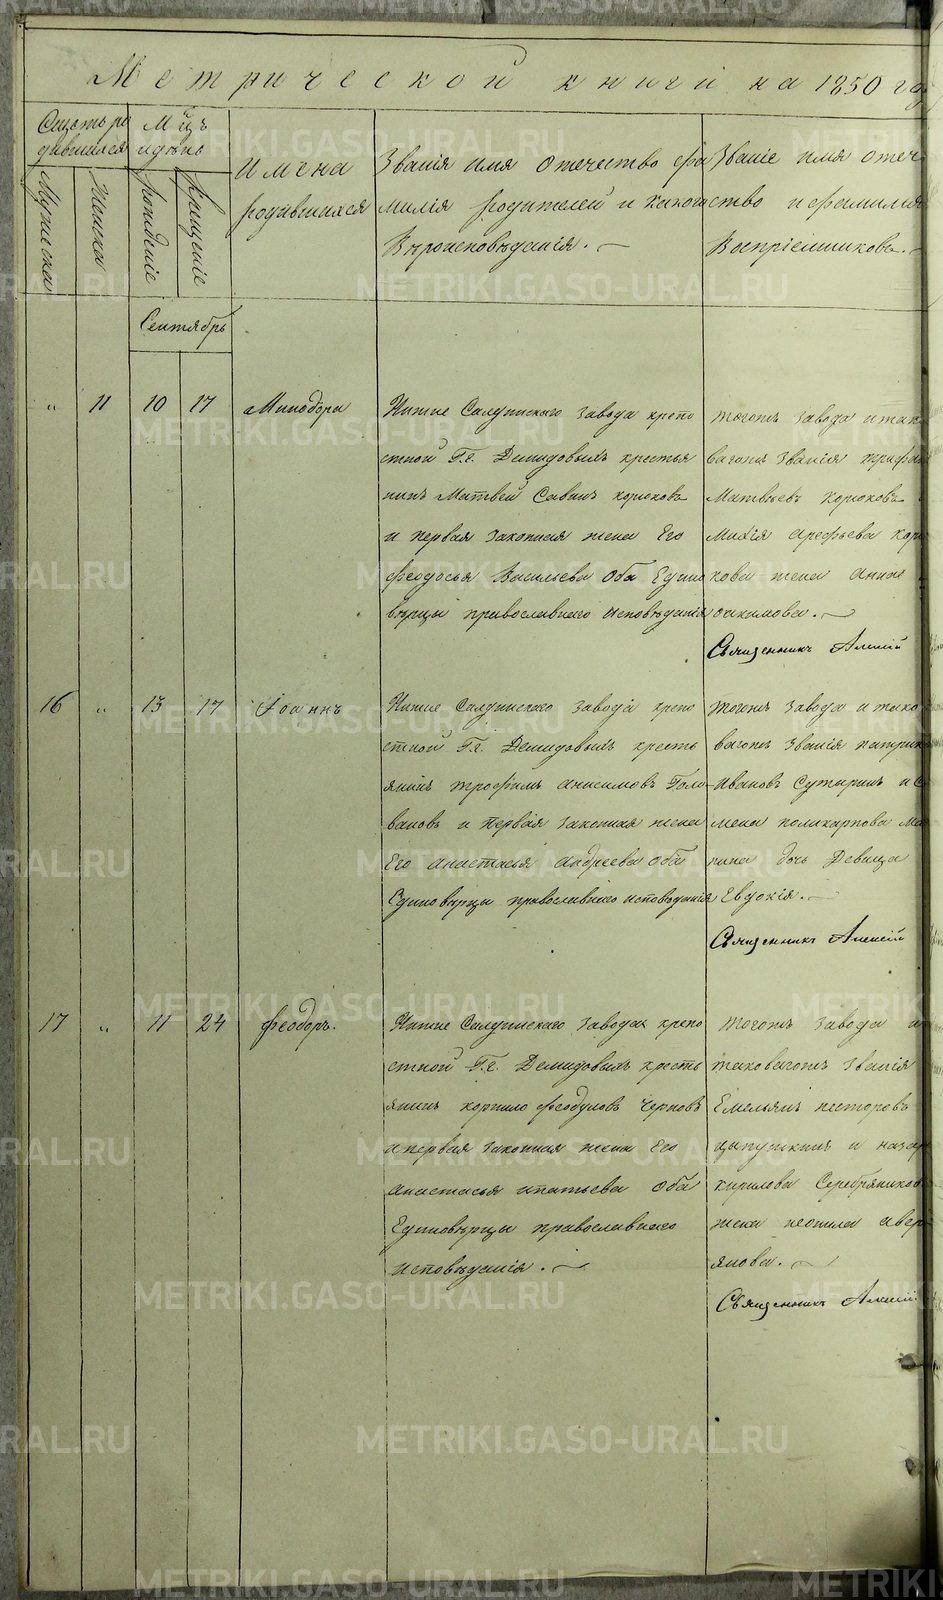 Метрической книги на 1850 го
Счетъ ро
дившихся
Мужеска
Женска
М-цъ
и день
Рожденіе
Крещеніе
Имена
родившихся
Званія имя отечество фа
милія родителей и какого
Вероисповѣданія.
Званіе имя отеч
ство и фамилия
Воспріемниковъ.
Сентябрь
" 11 10 17 Минодора
Нижне Салдинскаго завода крепо
стной Гг. Демидовыхъ крестья
нинъ Матвей Савинъ Корюковъ
и первая законная жена Его
Феодосья Васильева оба Едино
верцы православнаго исповѣданія
тогожъ завода и так
вагожъ званія Трифон
Матвѣевъ Корюковъ
Арефьева Кор
кова жена Анна
Священникъ Алексій
16 " 13 17 Іоаннъ
Нижне Салдинскаго завода крепо
стной Гг. Демидовыхъ кресть
янинъ Трофимъ Анисимовъ Голо
вановъ и первая законная жена
Его Анастасья Андреева оба
Единоверцы православнаго исповѣданія
тогожъ завода и тако
вагожъ званія Патрик
Ивановъ Сутыринъ и С
мена Поликарпова Ма
нина дочь Девица
Евдокія.
Священникъ Алексій
17 " 11 24 Феодоръ.
Нижне Салдинскаго завода крепо
стной Гг. Демидовыхъ кресть
янинъ Корнило Феодуловъ Черновъ
и первая законная жена Его
Анастасья Ипатьева оба
Единоверцы православнаго
исповѣданія.
тогожъ завода и
таковагожъ званія
Емельянъ Несторовъ
и Назар
Кирилова Серебряников
жена Неонила Авер
янова.
Священникъ Алексій
METRIKI.GASO-URAL.RU